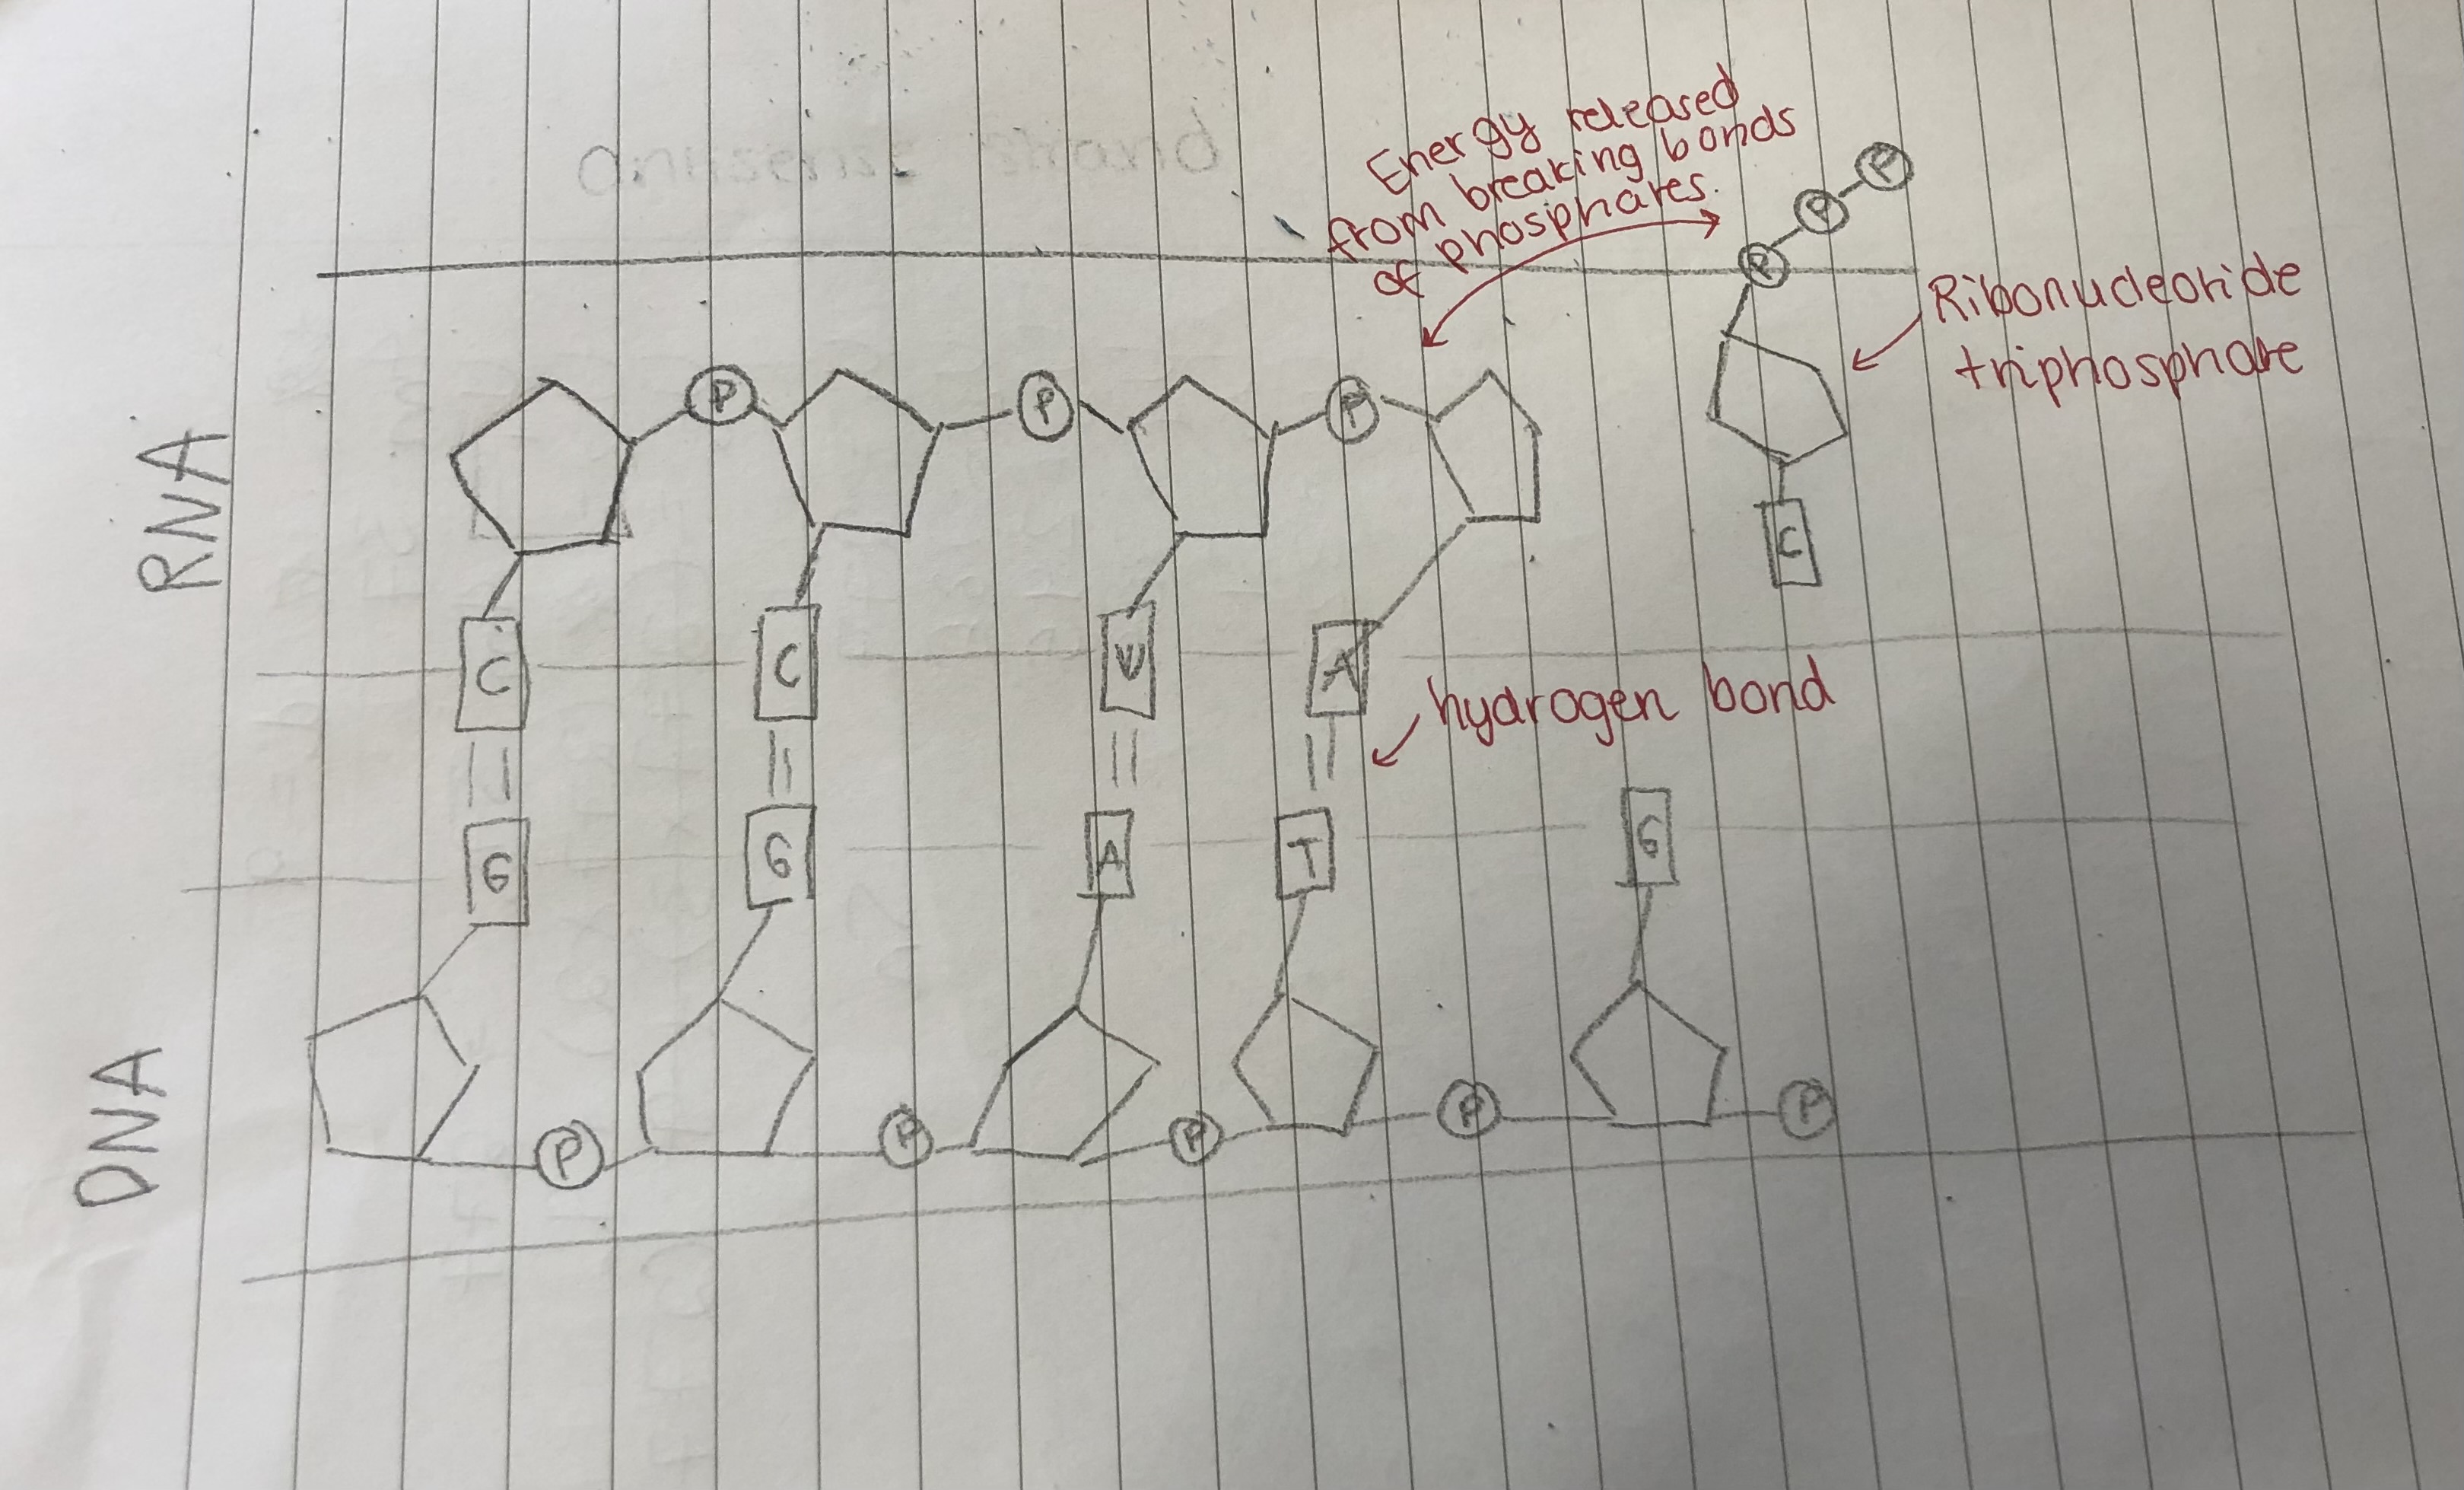 antisense strand
Energy released
from breaking bonds
of phosphates.
P
P
P
Ribonucleotide
triphosphate
RNA
P P P
C
C C U A
hydrogen bond
G G A T G
DNA
P P P P P